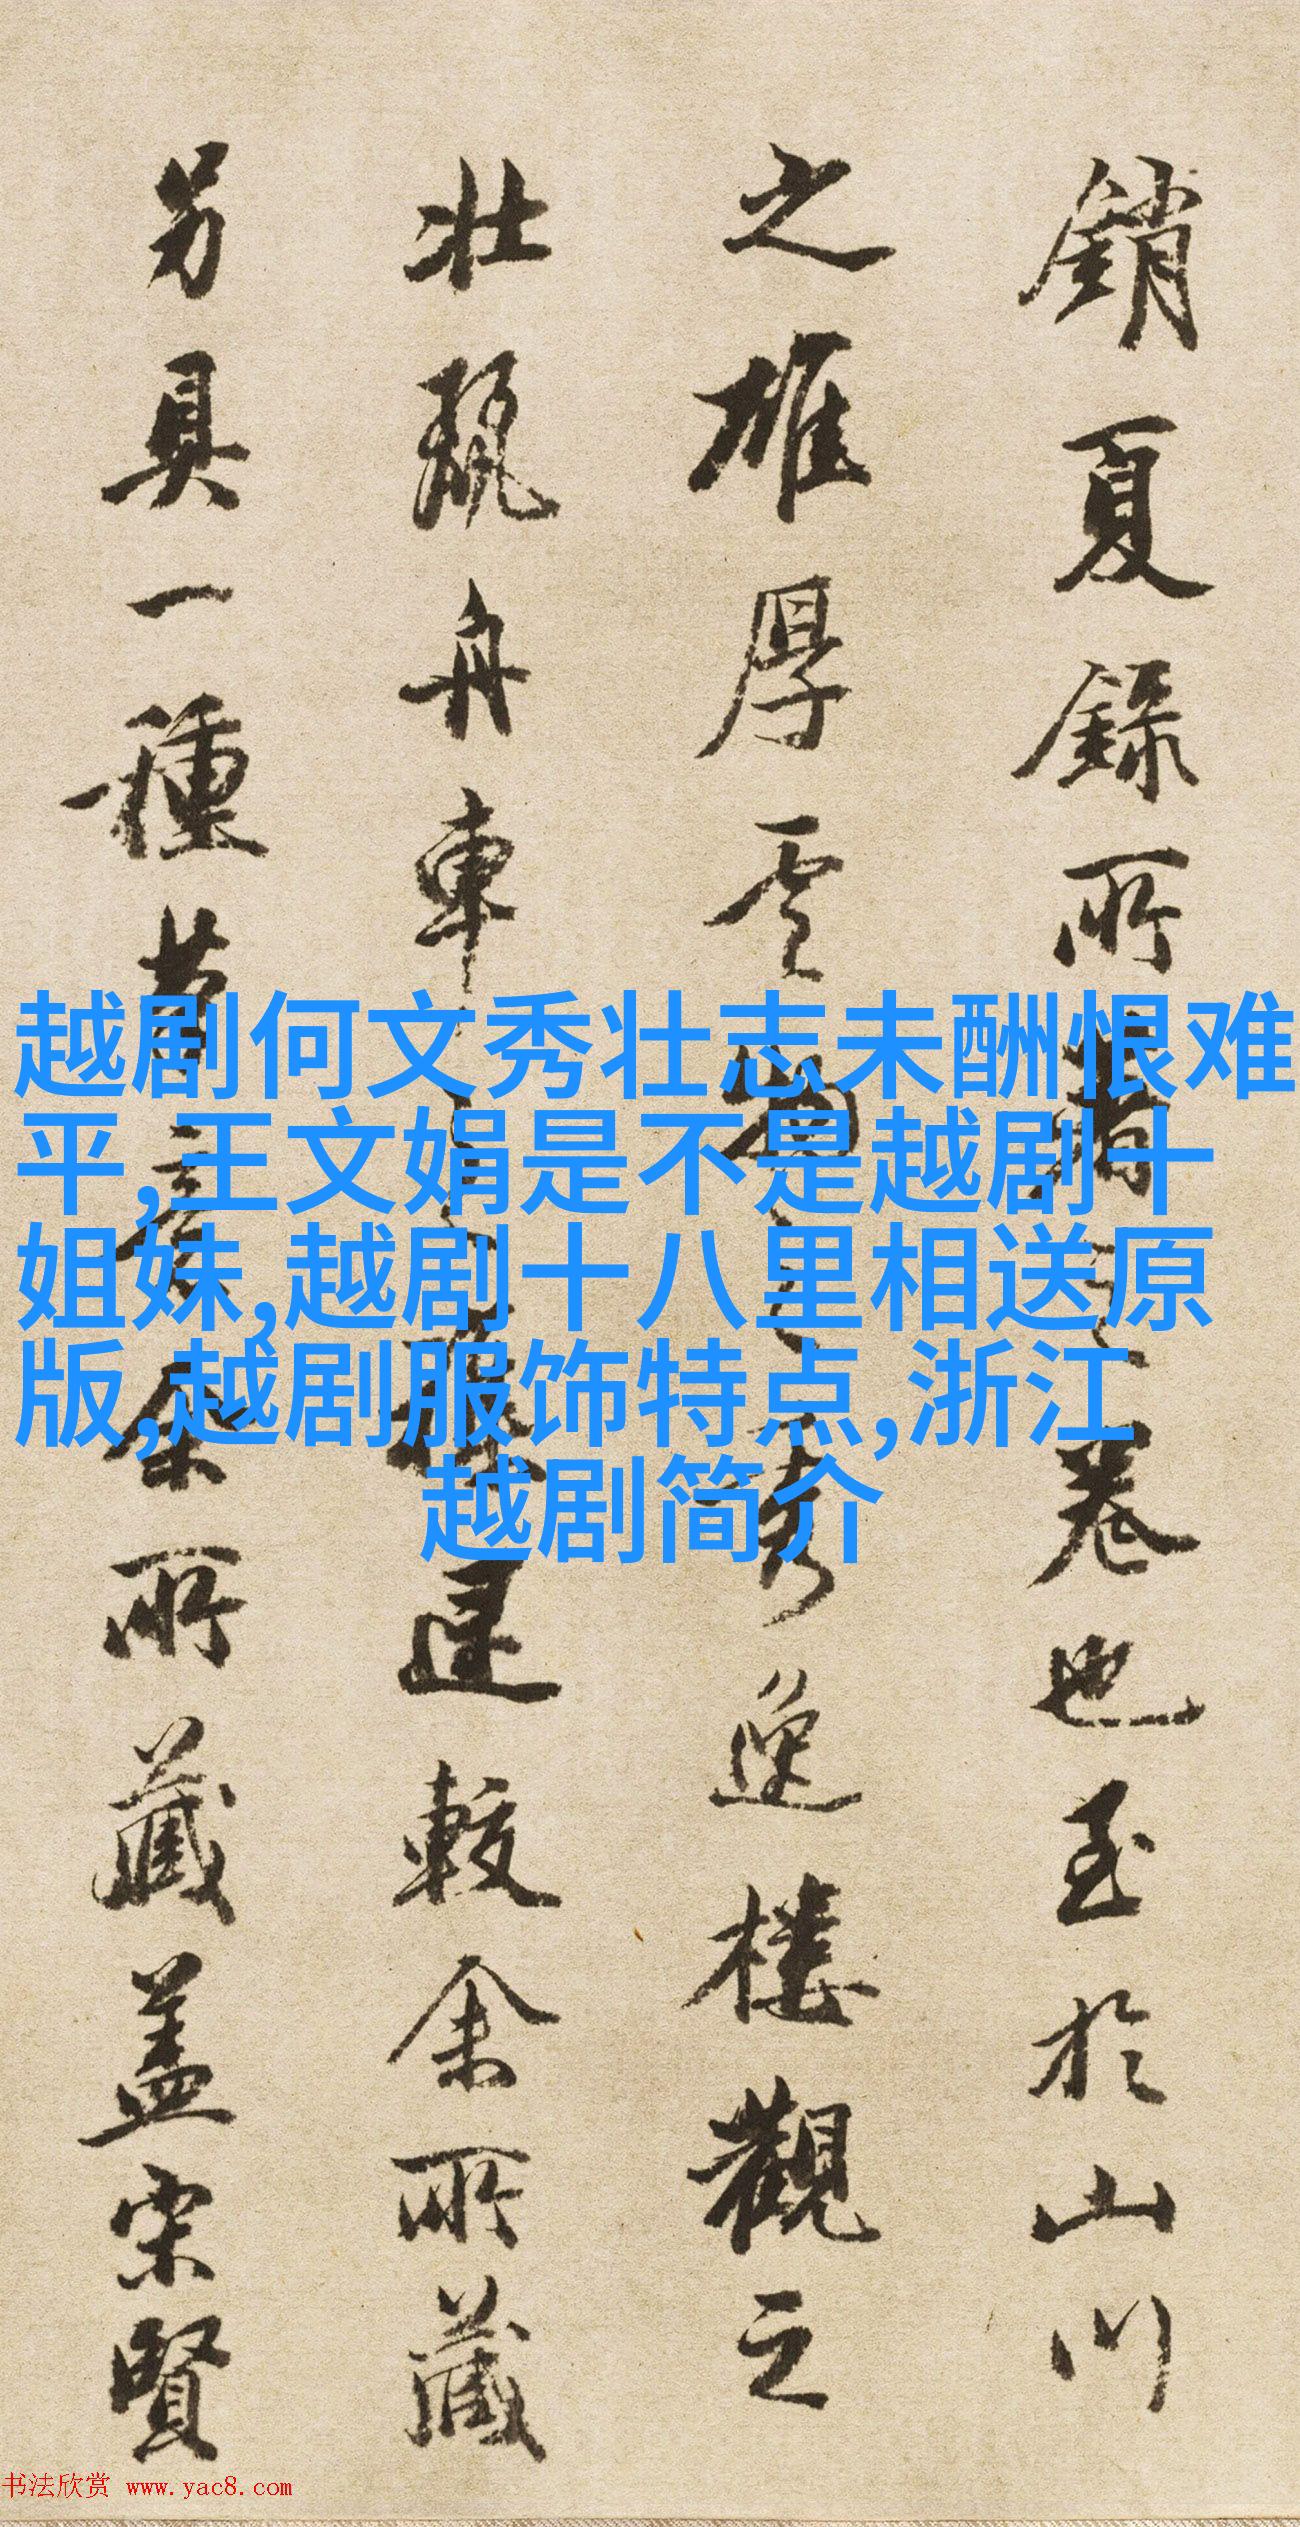 銷夏錄所著之卷也至於山川
之雄厚雲物之秀逸樓觀之
壯麗舟車之捷遲較余所藏
另具一種昔之余所藏蓋宋賢
越剧何文秀壮志未酬恨难
平,王文娟是不是越剧十
姐妹,越剧十八里相送原
版,越剧服饰特点,浙江
越剧简介
书法欣赏 www.yac8.com